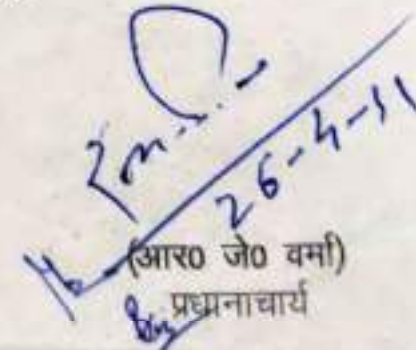 26-4-11
(आर0 जे0 वर्मा)
प्रधानाचार्य